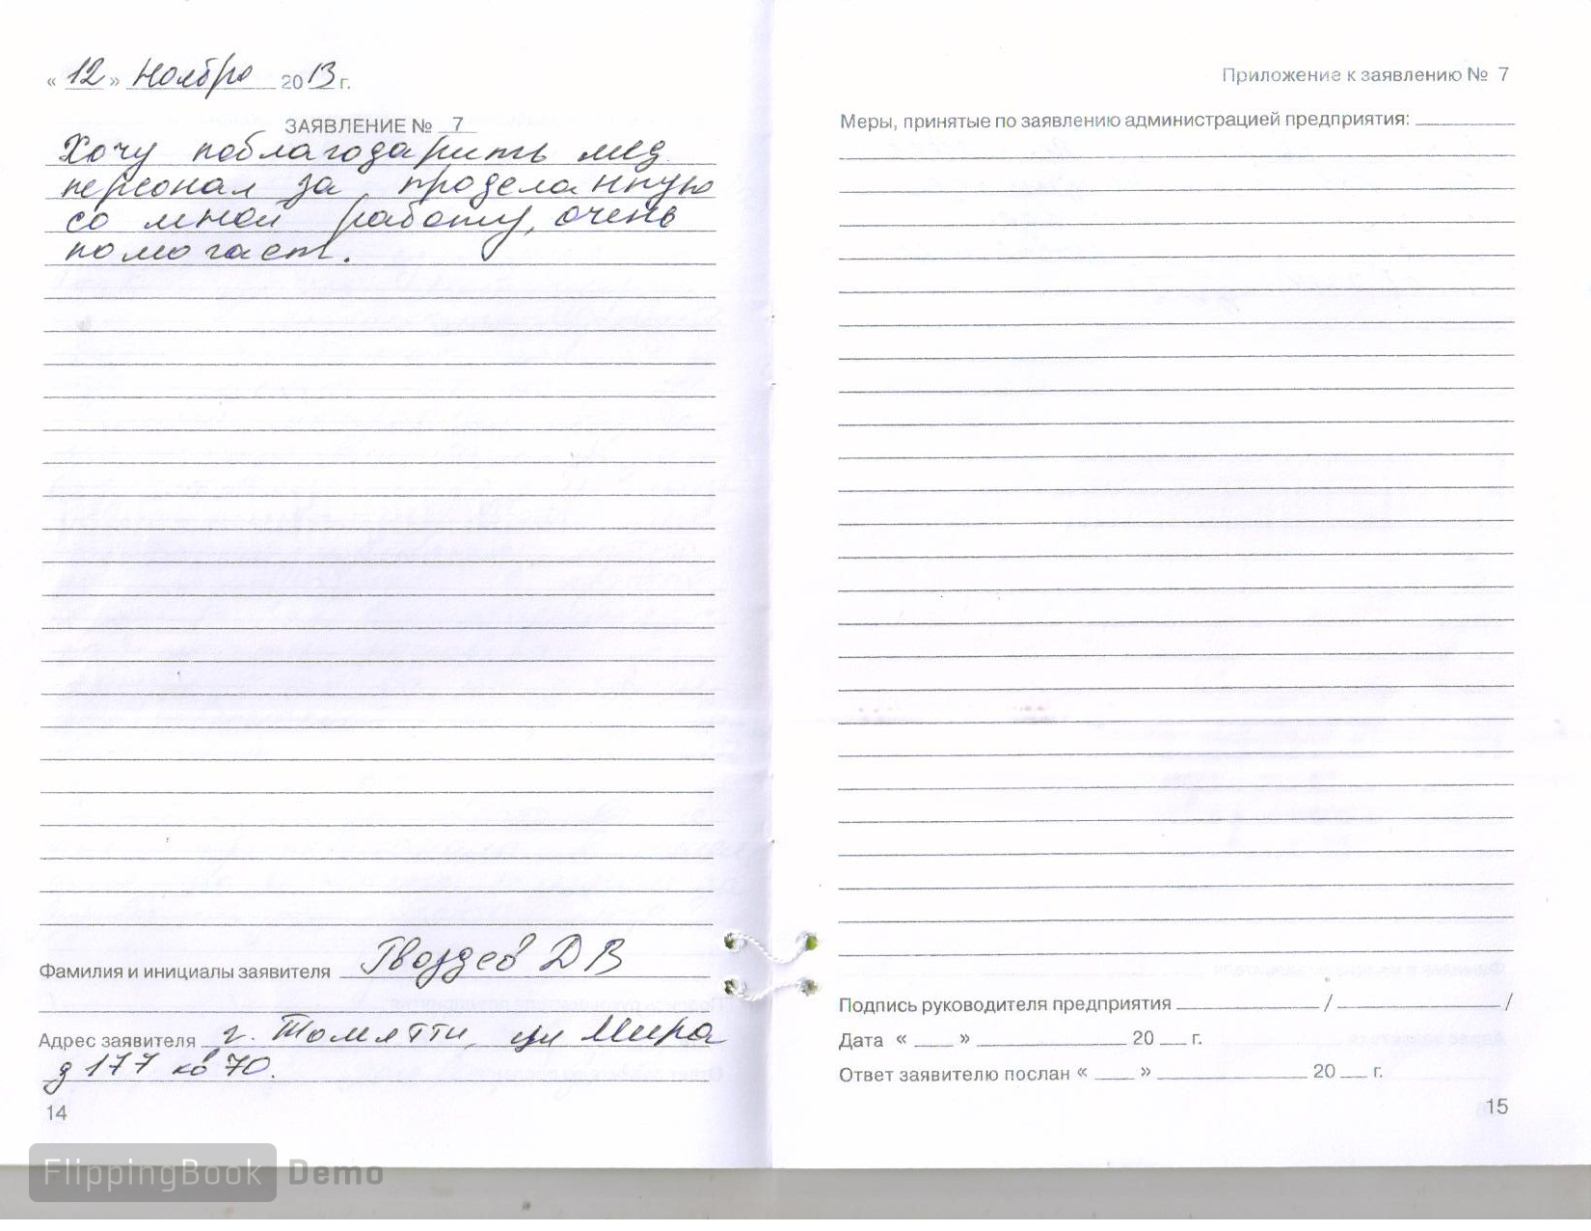 « 12 » Ноября 2013 г.
ЗАЯВЛЕНИЕ № 7
Хочу поблагодарить мед
персонал за проделанную
со мной работу, очень
помогает.
Фамилия и инициалы заявителя Гвоздев Д В
Адрес заявителя г. Тольятти, ул Мира
д 177 кв 70.
14
Приложение к заявлению № 7
Меры, принятые по заявлению администрацией предприятия:
Подпись руководителя предприятия / /
Дата « » 20 г.
Ответ заявителю послан « » 20 г.
15
FlippingBook Demo